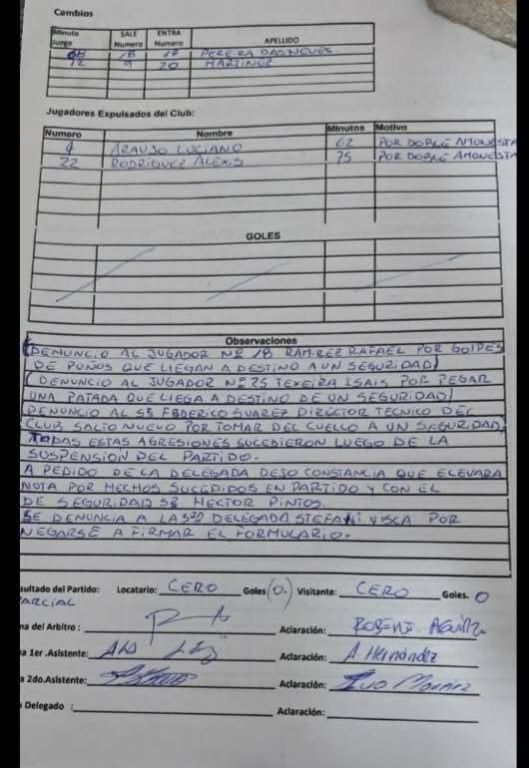 Cambios
Minuto Juego SALE Numero ENTRA Numero APELLIDO
68 18 17 PEREIRA DASNEVES
72 9 20 MARTINEZ
Jugadores Expulsados del Club:
Numero Nombre Minutos Motivo
4 ARAUJO LUCIANO 62 POR DOBLE AMONESTA
22 RODRIGUEZ ALEXIS 75 POR DOBLE AMONESTA
GOLES
Observaciones
(DENUNCIO AL JUGADOR Nº 18 RAMIREZ RAFAEL POR GOLPES
DE PUÑOS QUE LLEGAN A DESTINO A UN SEGURIDAD)
(DENUNCIO AL JUGADOR Nº 25 TEXEIRA ISAIS POR PEGAR
UNA PATADA QUE LLEGA A DESTINO DE UN SEGURIDAD)
DENUNCIO AL SR FEDERICO SUAREZ DIRECTOR TECNICO DEL
CLUB SALTO NUEVO POR TOMAR DEL CUELLO A UN SEGURIDAD,
TODAS ESTAS AGRESIONES SUCEDIERON LUEGO DE LA
SUSPENSION DEL PARTIDO.
A PEDIDO DE LA DELEGADA DEJO CONSTANCIA QUE ELEVARA
NOTA POR HECHOS SUCEDIDOS EN PARTIDO Y CON EL
DE SEGURIDAD SR HECTOR PINTOS.
SE DENUNCIA A LA SRA DELEGADA STEFANI VISCA POR
NEGARSE A FIRMAR EL FORMULARIO.
sultado del Partido: Locatario: CERO Goles (0.) Visitante: CERO Goles. 0
PARCIAL
ma del Arbitro : Aclaración:
a 1er .Asistente: Aclaración: A. Hernández
a 2do.Asistente: Aclaración:
Delegado : Aclaración: